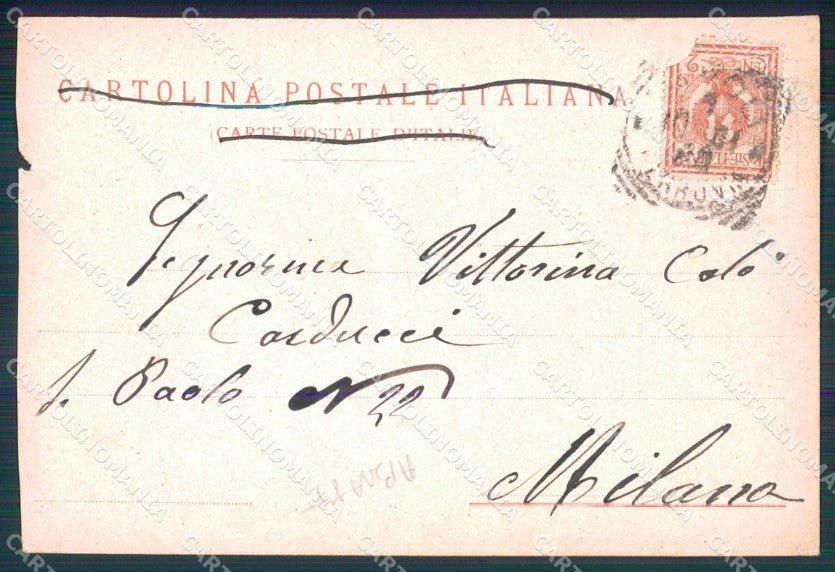 CARTOLINA POSTALE ITALIANA
(CARTE POSTALE D'ITALIE)
Signorina Vittorina Colò
Carducci
S. Paolo N 22
Milano
CARTOLINOMANIA